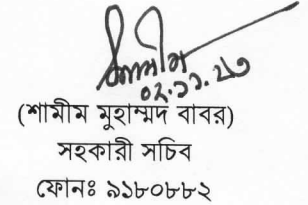 ০২.১১.২৩
(শামীম মুহাম্মদ বাবর)
সহকারী সচিব
ফোনঃ ৯১৮০৮৮২